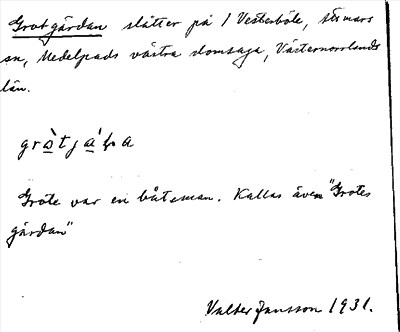 Grotgärdan slåtter på 1 Västerböle, Stormars
sn, Medelpads västra domsaga, Västernorrlands
län.
Grote var en båtsman. Kallas även "Grotes
gärdan"
Valter Jansson 1931.